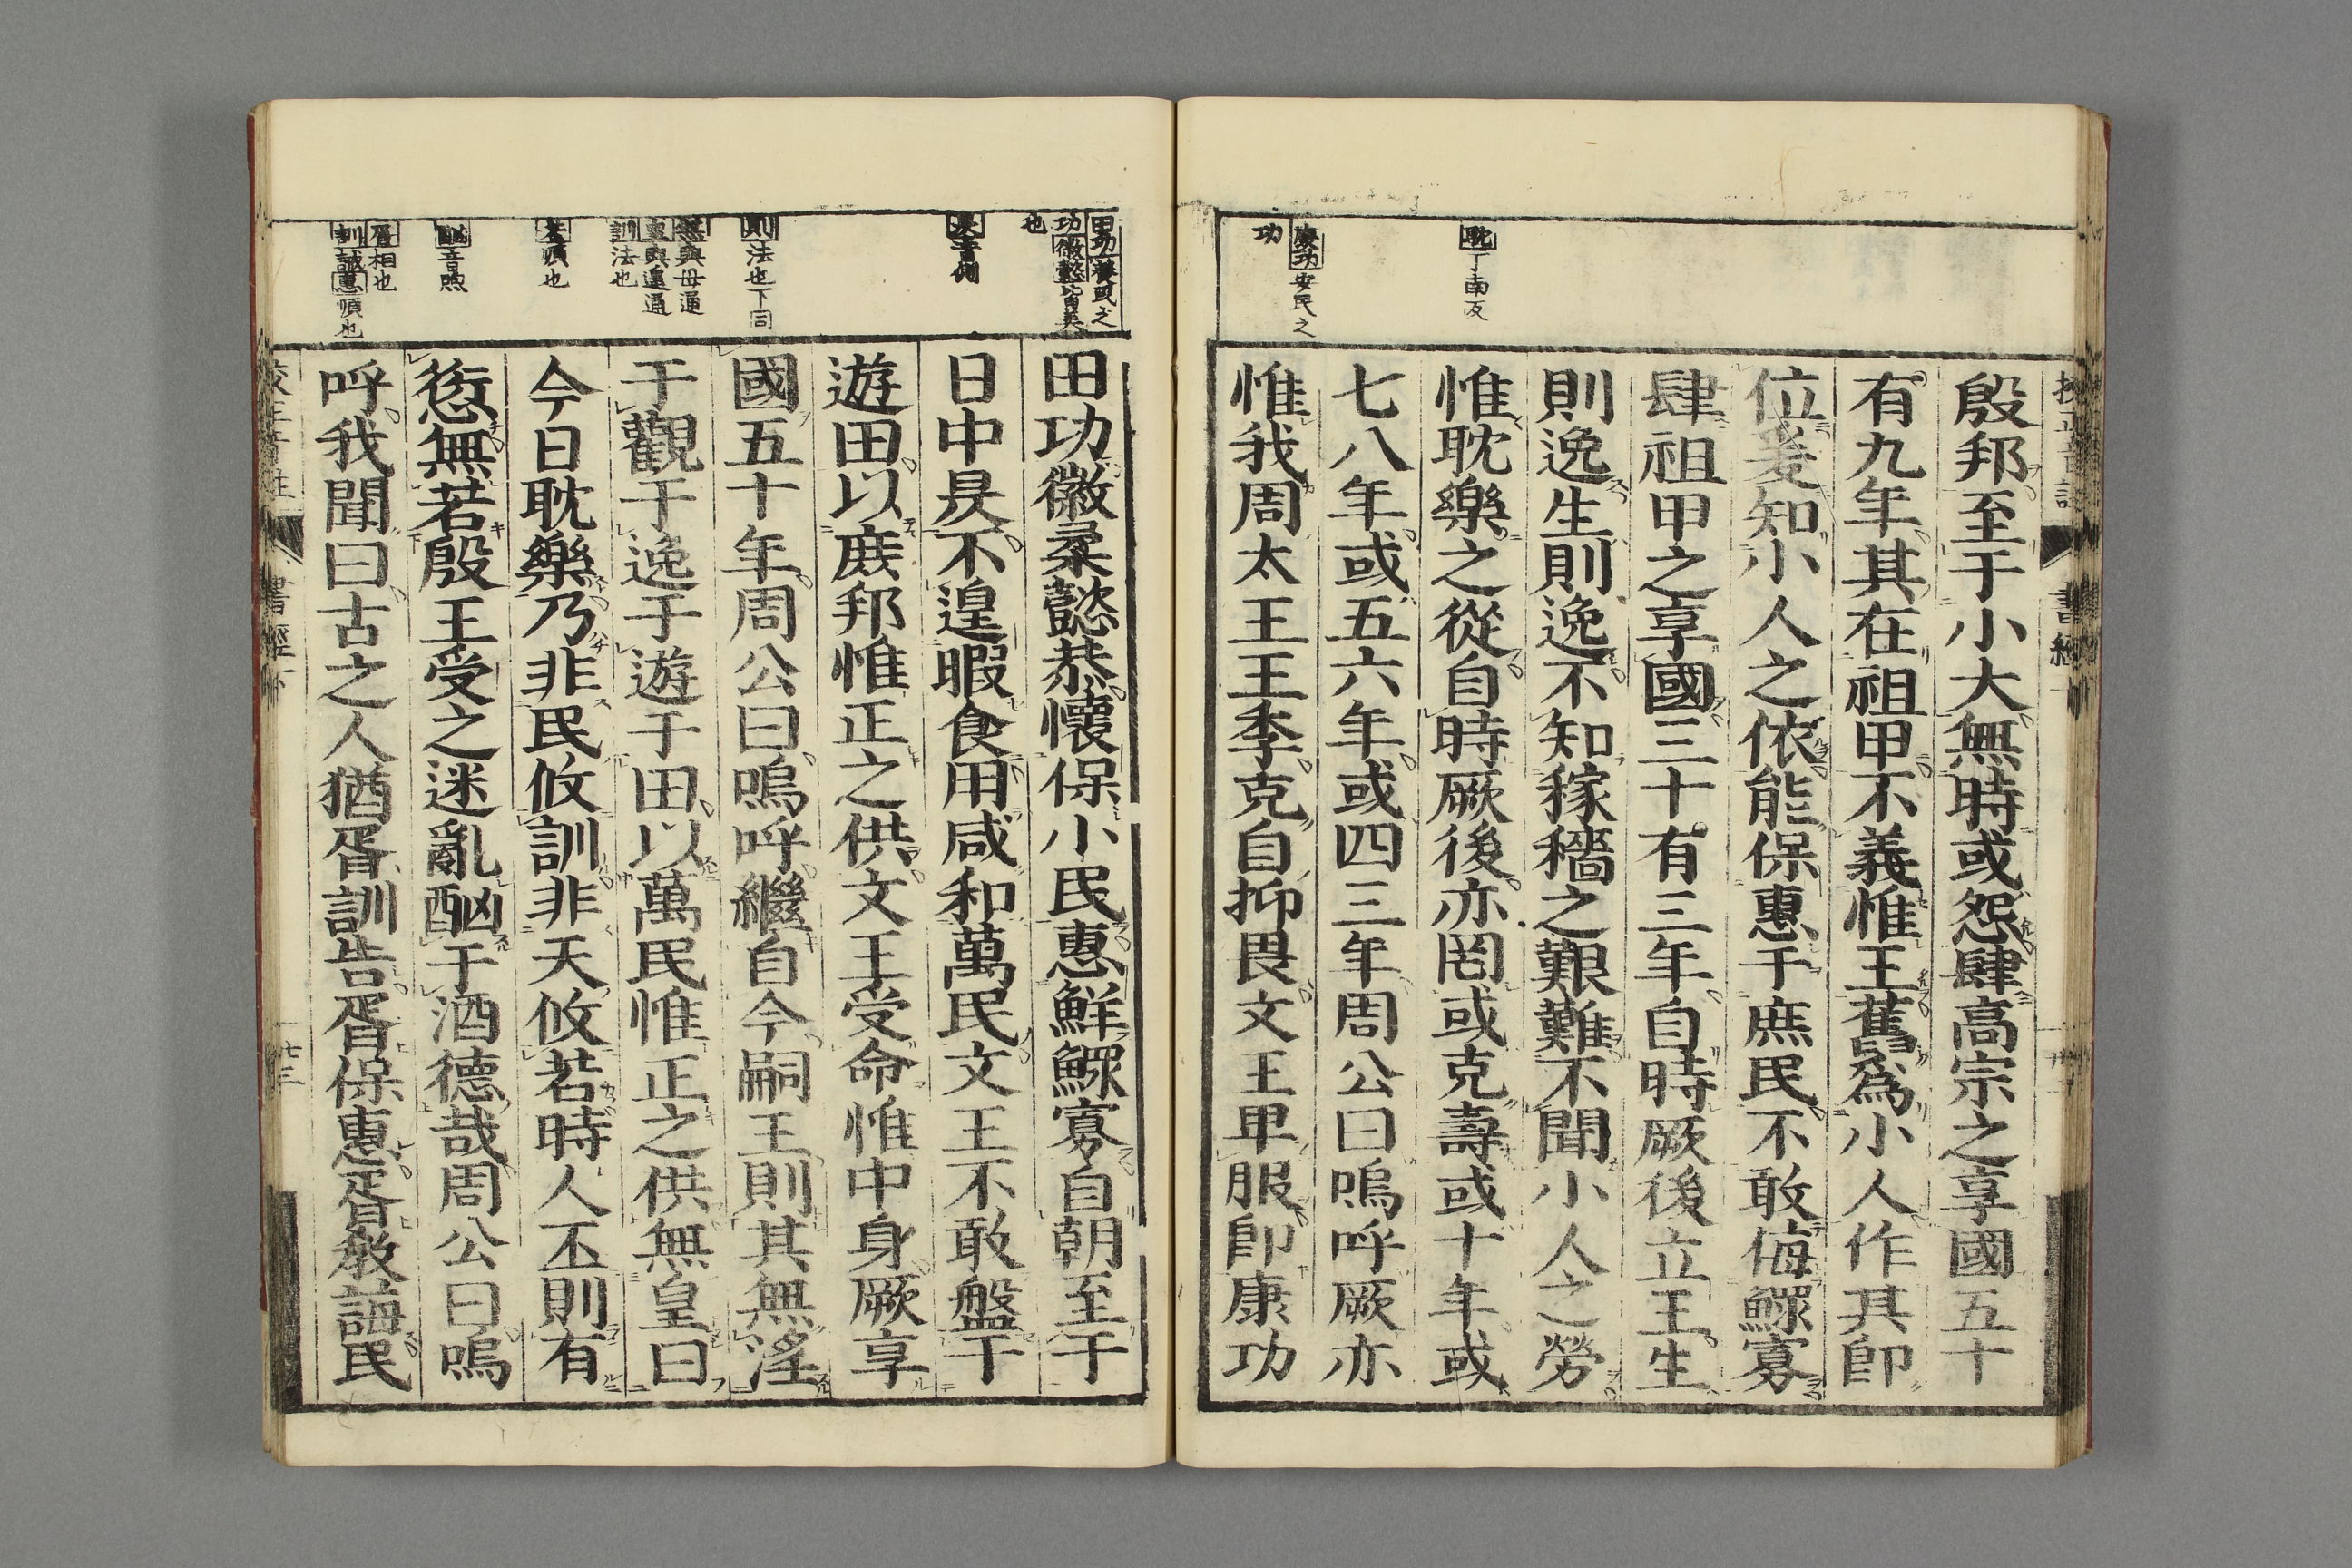 殷邦至于小大無時或怨肆高宗之享國五十
有九年其在祖甲不義惟王舊爲小人作其即
位爰知小人之依能保惠于庶民不敢侮鰥寡
肆祖甲之享國三十有三年自時厥後立王生
則逸生則逸不知稼穡之艱難不聞小人之勞
惟耽樂之從自時厥後亦罔或克壽或十年或
七八年或五六年或四三年周公曰嗚呼厥亦
惟我周太王王季克自抑畏文王卑服即康功
耽丁南反
康功安民之
功
田功徽柔懿恭懷保小民惠鮮鰥寡自朝至于
日中昃不遑暇食用咸和萬民文王不敢盤于
遊田以庶邦惟正之供文王受命惟中身厥享
國五十年周公曰嗚呼繼自今嗣王則其無淫
于觀于逸于遊于田以萬民惟正之供無皇曰
今日耽樂乃非民攸訓非天攸若時人丕則有
愆無若殷王受之迷亂酗于酒德哉周公曰嗚
呼我聞曰古之人猶胥訓告胥保惠胥教誨民
田功養民之
功徽懿皆美
也
昃音側
則法也下同
無與毋通
皇與遑通
訓法也
若順也
酗音煦
胥相也
訓誡惠順也
書經